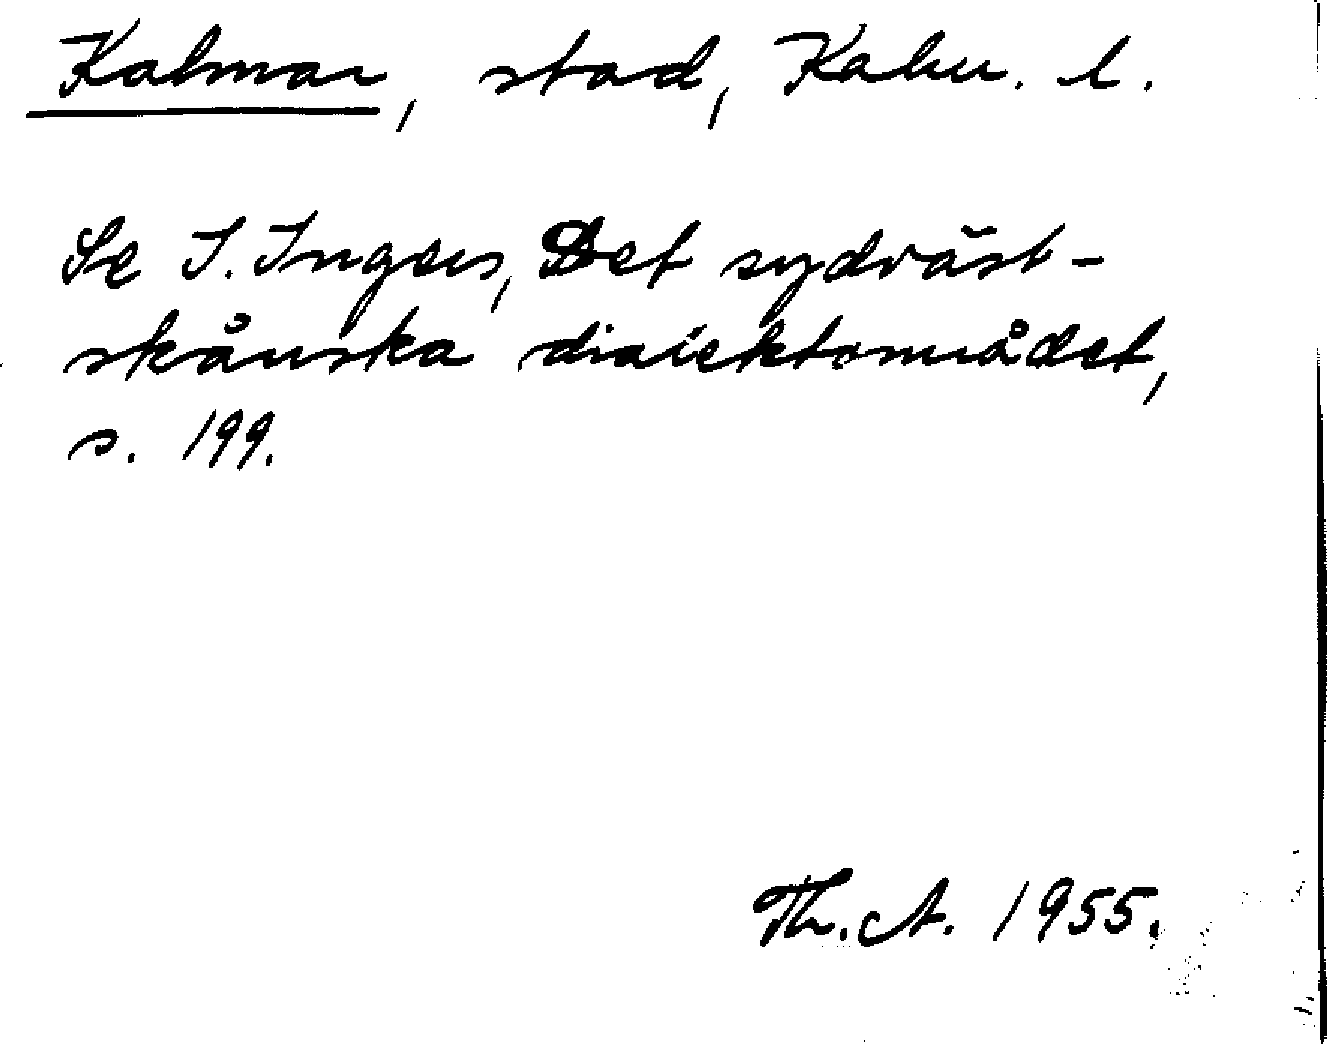 Kalmar, stad, Kalm. l.
Se I. Ingers, Det sydväst-
skånska dialektområdet,
s. 199.
Th. A. 1955.